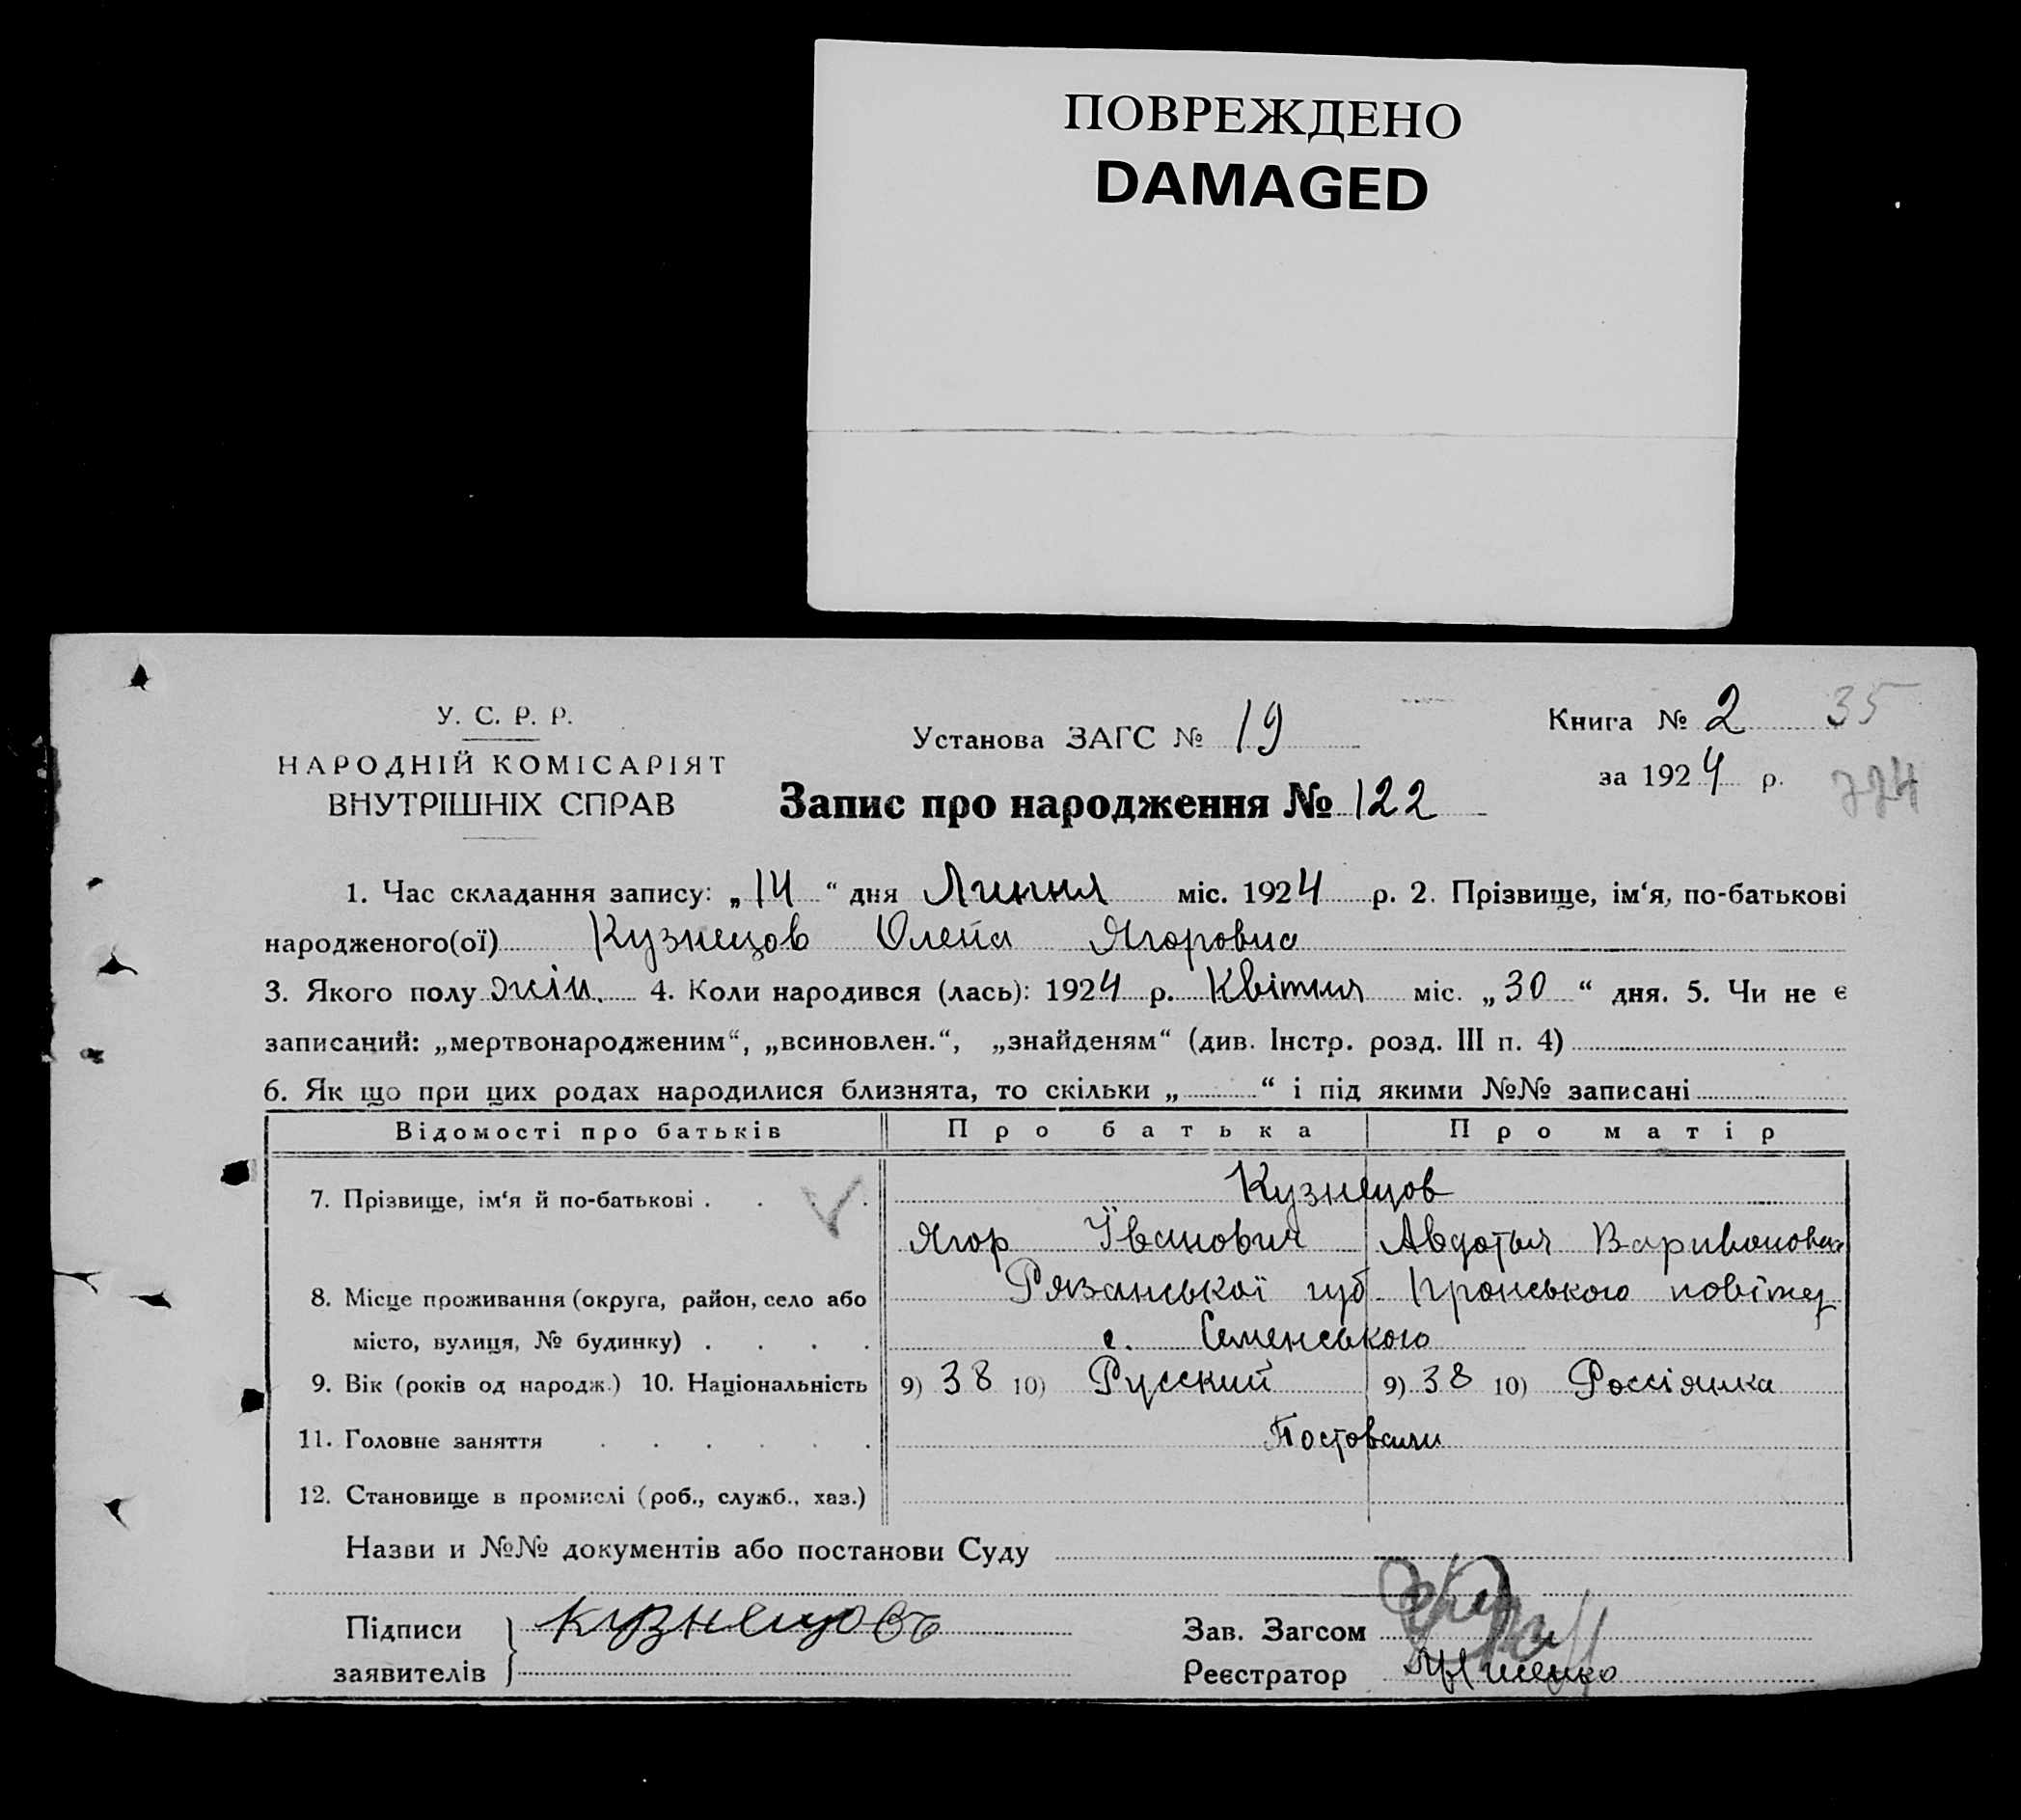 ПОВРЕЖДЕНО
DAMAGED
У. С. Р. Р.
НАРОДНІЙ КОМІСАРІЯТ
ВНУТРІШНІХ СПРАВ
Установа ЗАГС № 19
Запис про народження № 122
Книга № 2 35
за 1924 р.
724
1. Час складання запису: „14“ дня Липня міс. 1924 р. 2. Прізвище, ім‘я, по-батькові
народженого(ої) Кузнецов Олена Ягоровна
3. Якого полу жін. 4. Коли народився (лась): 1924 р. Квітня міс. „30“ дня. 5. Чи не є
записаний: „мертвонародженим“, „всиновлен.“, „знайденям“ (див. Інстр. розд. III п. 4)
6. Як що при цих родах народилися близнята, то скільки „ “ і під якими №№ записані
Відомості про батьків Про батька Про матір
7. Прізвище, ім‘я й по-батькові . . . . Кузнецов
Ягор Іванович Авдотья
8. Місце проживання (округа, район, село або Рязанської губ. Пронського повіту
місто, вулиця, № будинку) . . . . с. Семенського
9. Вік (років од народж.) 10. Національність 9) 38 10) Русский 9) 38 10) Россіянка
11. Головне заняття . . . . . .
12. Становище в промислі (роб., служб., хаз.)
Назви и №№ документів або постанови Суду
Підписи Кузнецовъ Зав. Загсом
заявителів Реєстратор